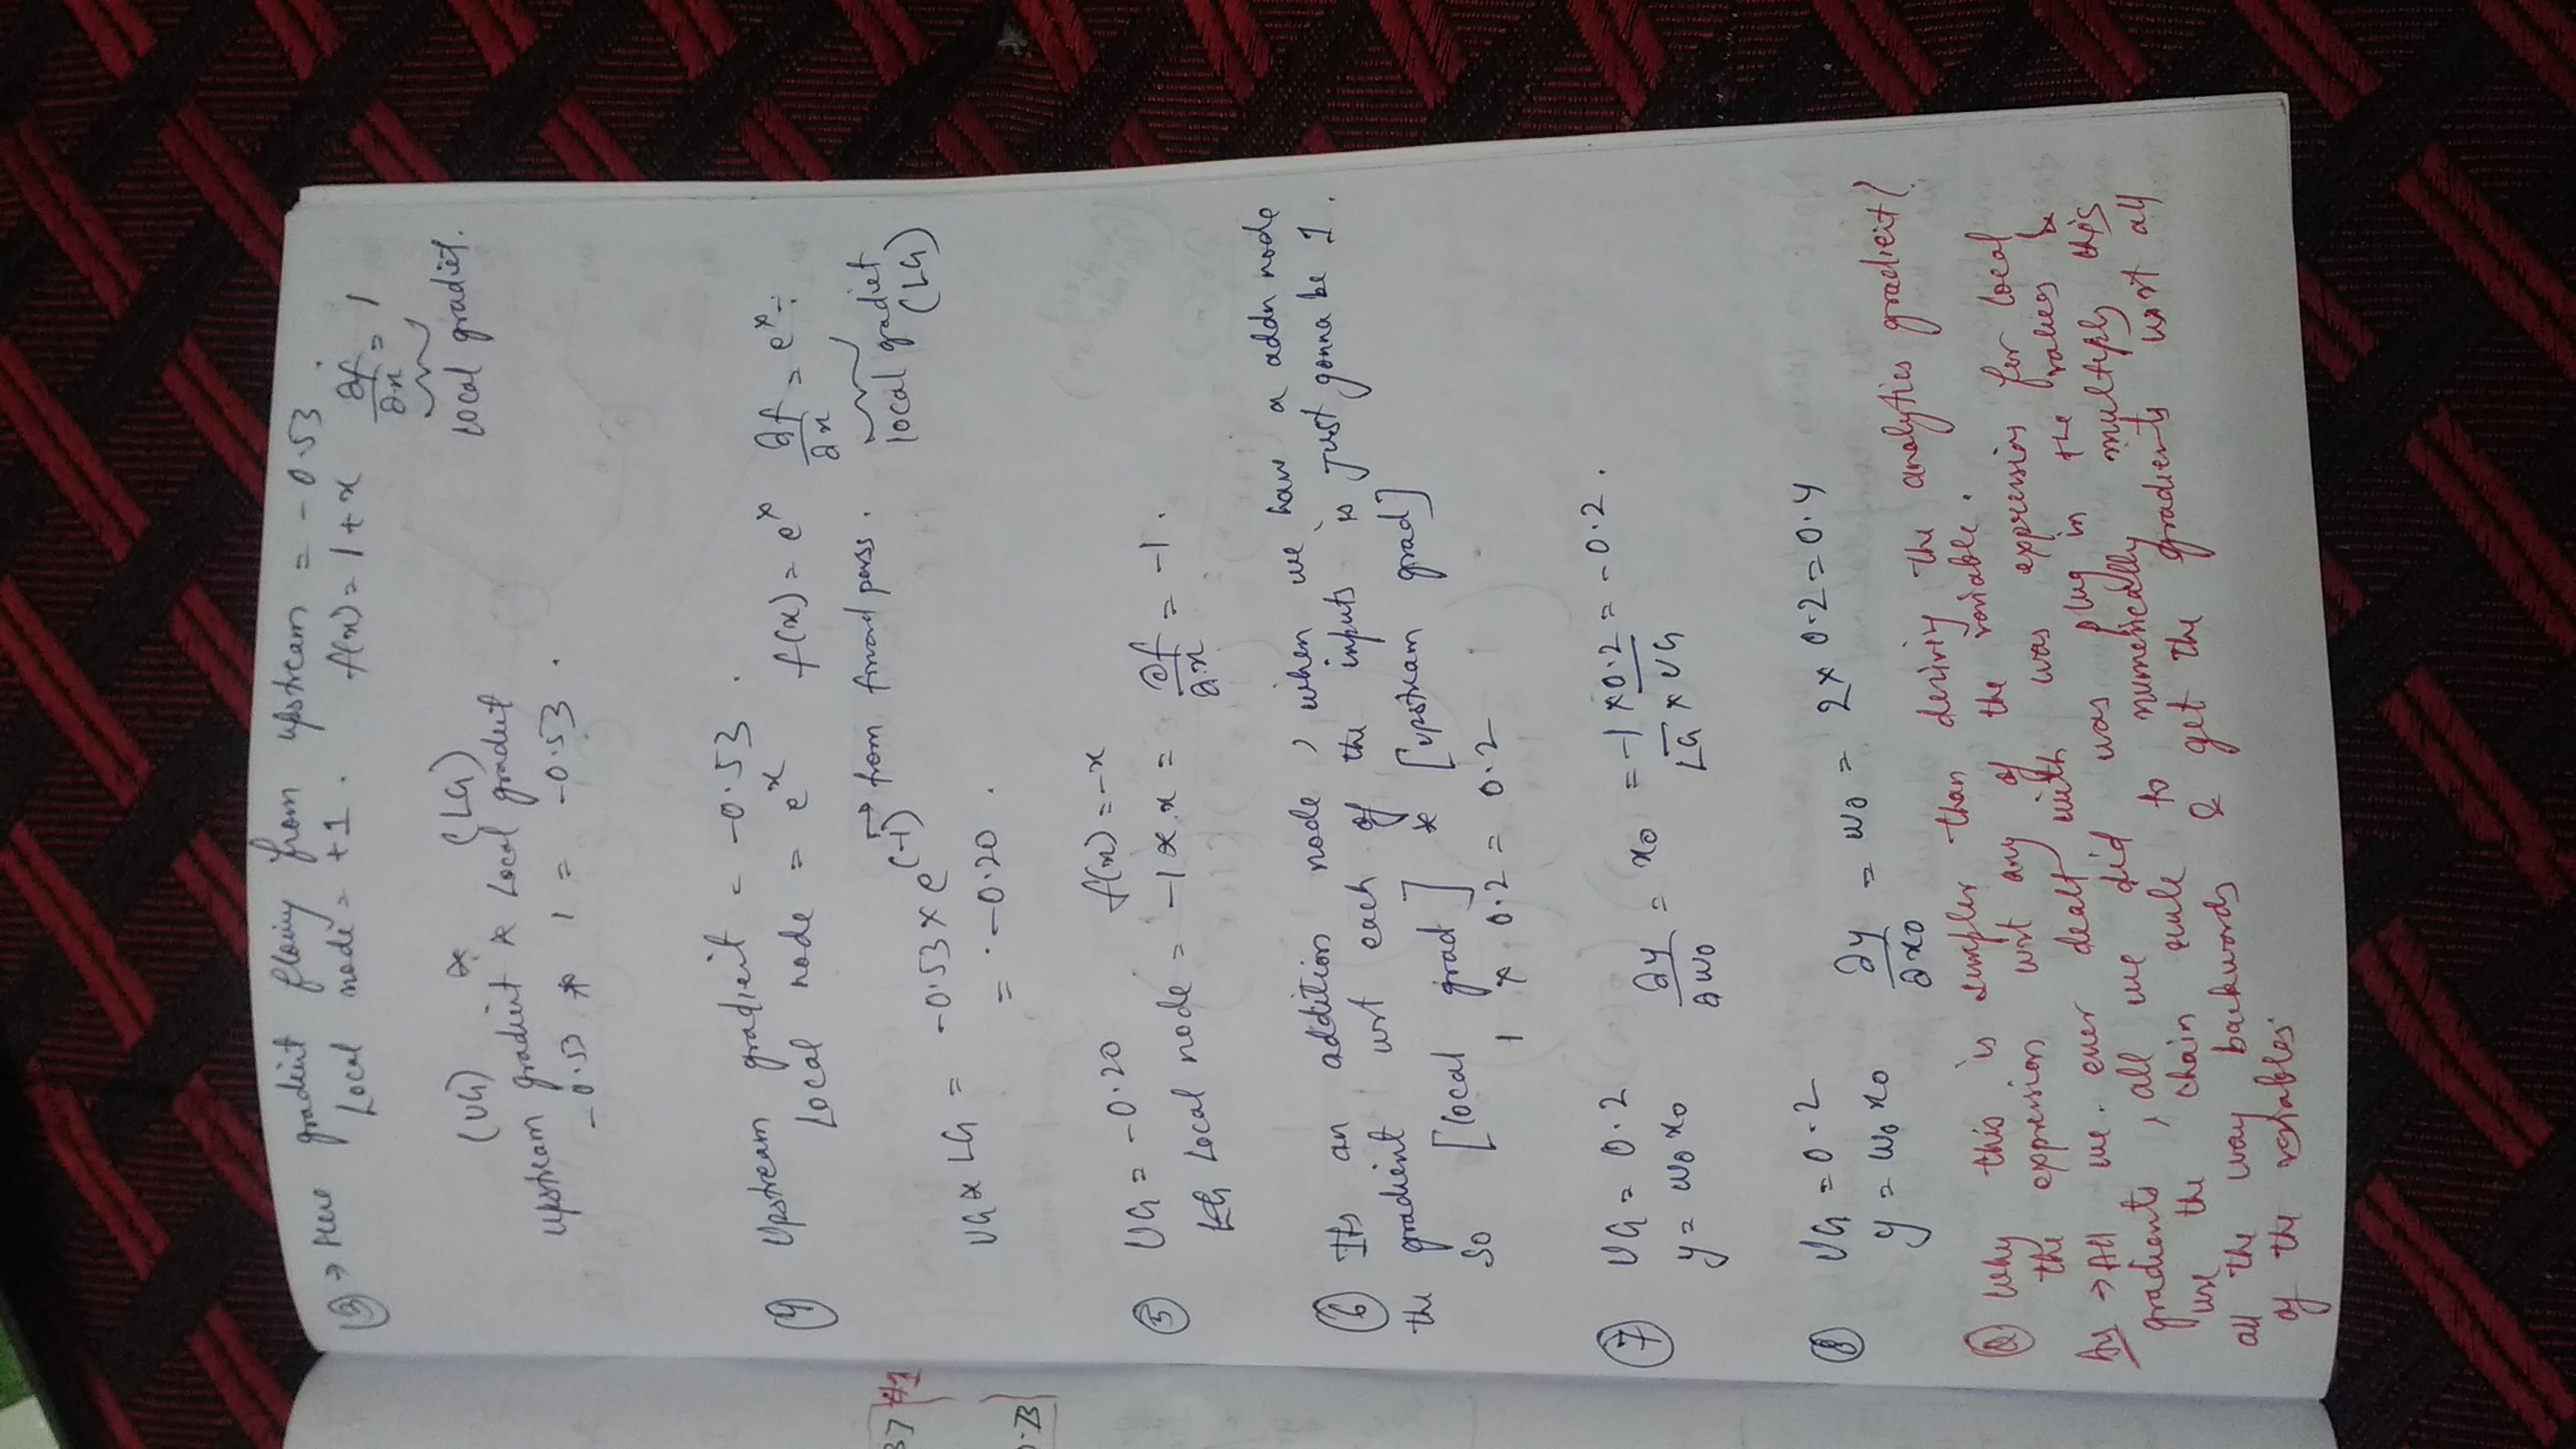 ③ → Here gradient flowing from upstream = -0.53.
Local node = +1. f(x) = 1+x ∂f/∂x = 1
local gradiet.
(UG) * (LG)
Upstream gradient * Local gradient
-0.53 * 1 = -0.53.
④ Upstream gradient = -0.53.
Local node = e^x f(x) = e^x ∂f/∂x = e^x
local gradiet
(LG)
UG * LG = -0.53 x e^(-1) → from forward pass.
= -0.20.
37 #1
⑤ UG = -0.20 f(x) = -x
Local node = -1 * x = ∂f/∂x = -1.
⑥ Its an addition node, when we have a addn node
the gradient wrt each of the inputs is just gonna be 1.
So [local grad] * [upstream grad]
1 x 0.2 = 0.2
⑦ UG = 0.2
y = w0 x0 ∂y/∂w0 = x0 = -1 x 0.2 = -0.2.
LG x UG
⑧ UG = 0.2
y = w0 x0 ∂y/∂x0 = w0 = 2 x 0.2 = 0.4
Ⓠ Why this is simpler than deriving the analytics gradient?
the expression wrt any of the variable.
Ans → All we ever dealt with was expression for local
gradients, all we did was plug in the values &
use the chain rule to numerically multiply this
all the way backwords & get the gradients wrt all
of the variables.